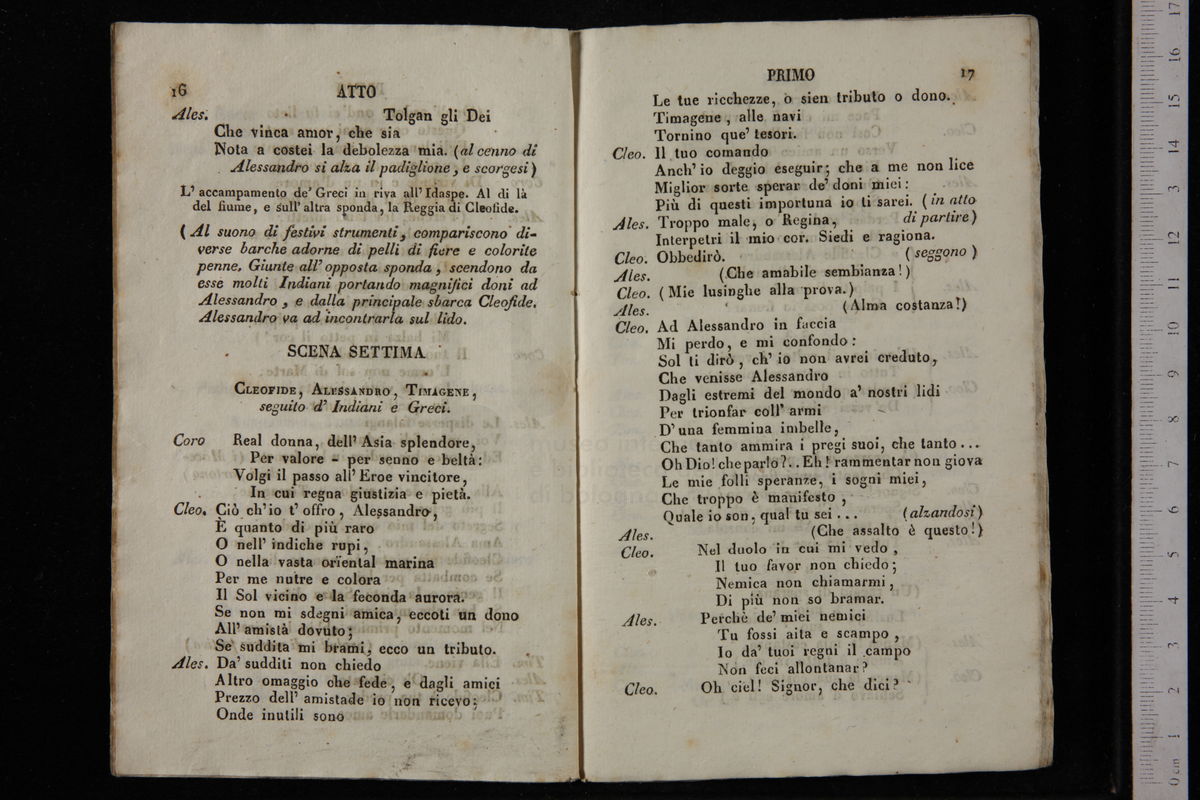 16 ATTO
Ales. Tolgan gli Dei
Che vinca amor, che sia
Nota a costei la debolezza mia. (al cenno di
Alessandro si alza il padiglione, e scorgesi)
L' accampamento de' Greci in riva all' Idaspe. Al di là
del fiume, e sull' altra sponda, la Reggia di Cleofide.
(Al suono di festivi strumenti, compariscono di-
verse barche adorne di pelli di fiere e colorite
penne. Giunte all' opposta sponda, scendono da
esse molti Indiani portando magnifici doni ad
Alessandro, e dalla principale sbarca Cleofide.
Alessandro va ad incontrarla sul lido.
SCENA SETTIMA
CLEOFIDE, ALESSANDRO, TIMAGENE,
seguito d' Indiani e Greci.
Coro Real donna, dell' Asia splendore,
Per valore - per senno e beltà:
Volgi il passo all' Eroe vincitore,
In cui regna giustizia e pietà.
Cleo. Ciò ch' io t' offro, Alessandro,
È quanto di più raro
O nell' indiche rupi,
O nella vasta orïental marina
Per me nutre e colora
Il Sol vicino e la feconda aurora.
Se non mi sdegni amica, eccoti un dono
All' amistà dovuto;
Se suddita mi brami, ecco un tributo.
Ales. Da' sudditi non chiedo
Altro omaggio che fede, e dagli amici
Prezzo dell' amistade io non ricevo;
Onde inutili sono
PRIMO 17
Le tue ricchezze, o sien tributo o dono.
Timagene, alle navi
Tornino que' tesori.
Cleo. Il tuo comando
Anch' io deggio eseguir; che a me non lice
Miglior sorte sperar de' doni miei:
Più di questi importuna io ti sarei. (in atto
Ales. Troppo male, o Regina, di partire)
Interpetri il mio cor. Siedi e ragiona.
Cleo. Obbedirò. (seggono)
Ales. (Che amabile sembianza!)
Cleo. (Mie lusinghe alla prova.)
Ales. (Alma costanza!)
Cleo. Ad Alessandro in faccia
Mi perdo, e mi confondo:
Sol ti dirò, ch' io non avrei creduto,
Che venisse Alessandro
Dagli estremi del mondo a' nostri lidi
Per trionfar coll' armi
D' una femmina imbelle,
Che tanto ammira i pregi suoi, che tanto...
Oh Dio! che parlo?.. Eh! rammentar non giova
Le mie folli speranze, i sogni miei,
Che troppo è manifesto,
Quale io son, qual tu sei... (alzandosi)
Ales. (Che assalto è questo!)
Cleo. Nel duolo in cui mi vedo,
Il tuo favor non chiedo;
Nemica non chiamarmi,
Di più non so bramar.
Ales. Perchè de' miei nemici
Tu fossi aita e scampo,
Io da' tuoi regni il campo
Non feci allontanar?
Cleo. Oh ciel! Signor, che dici?